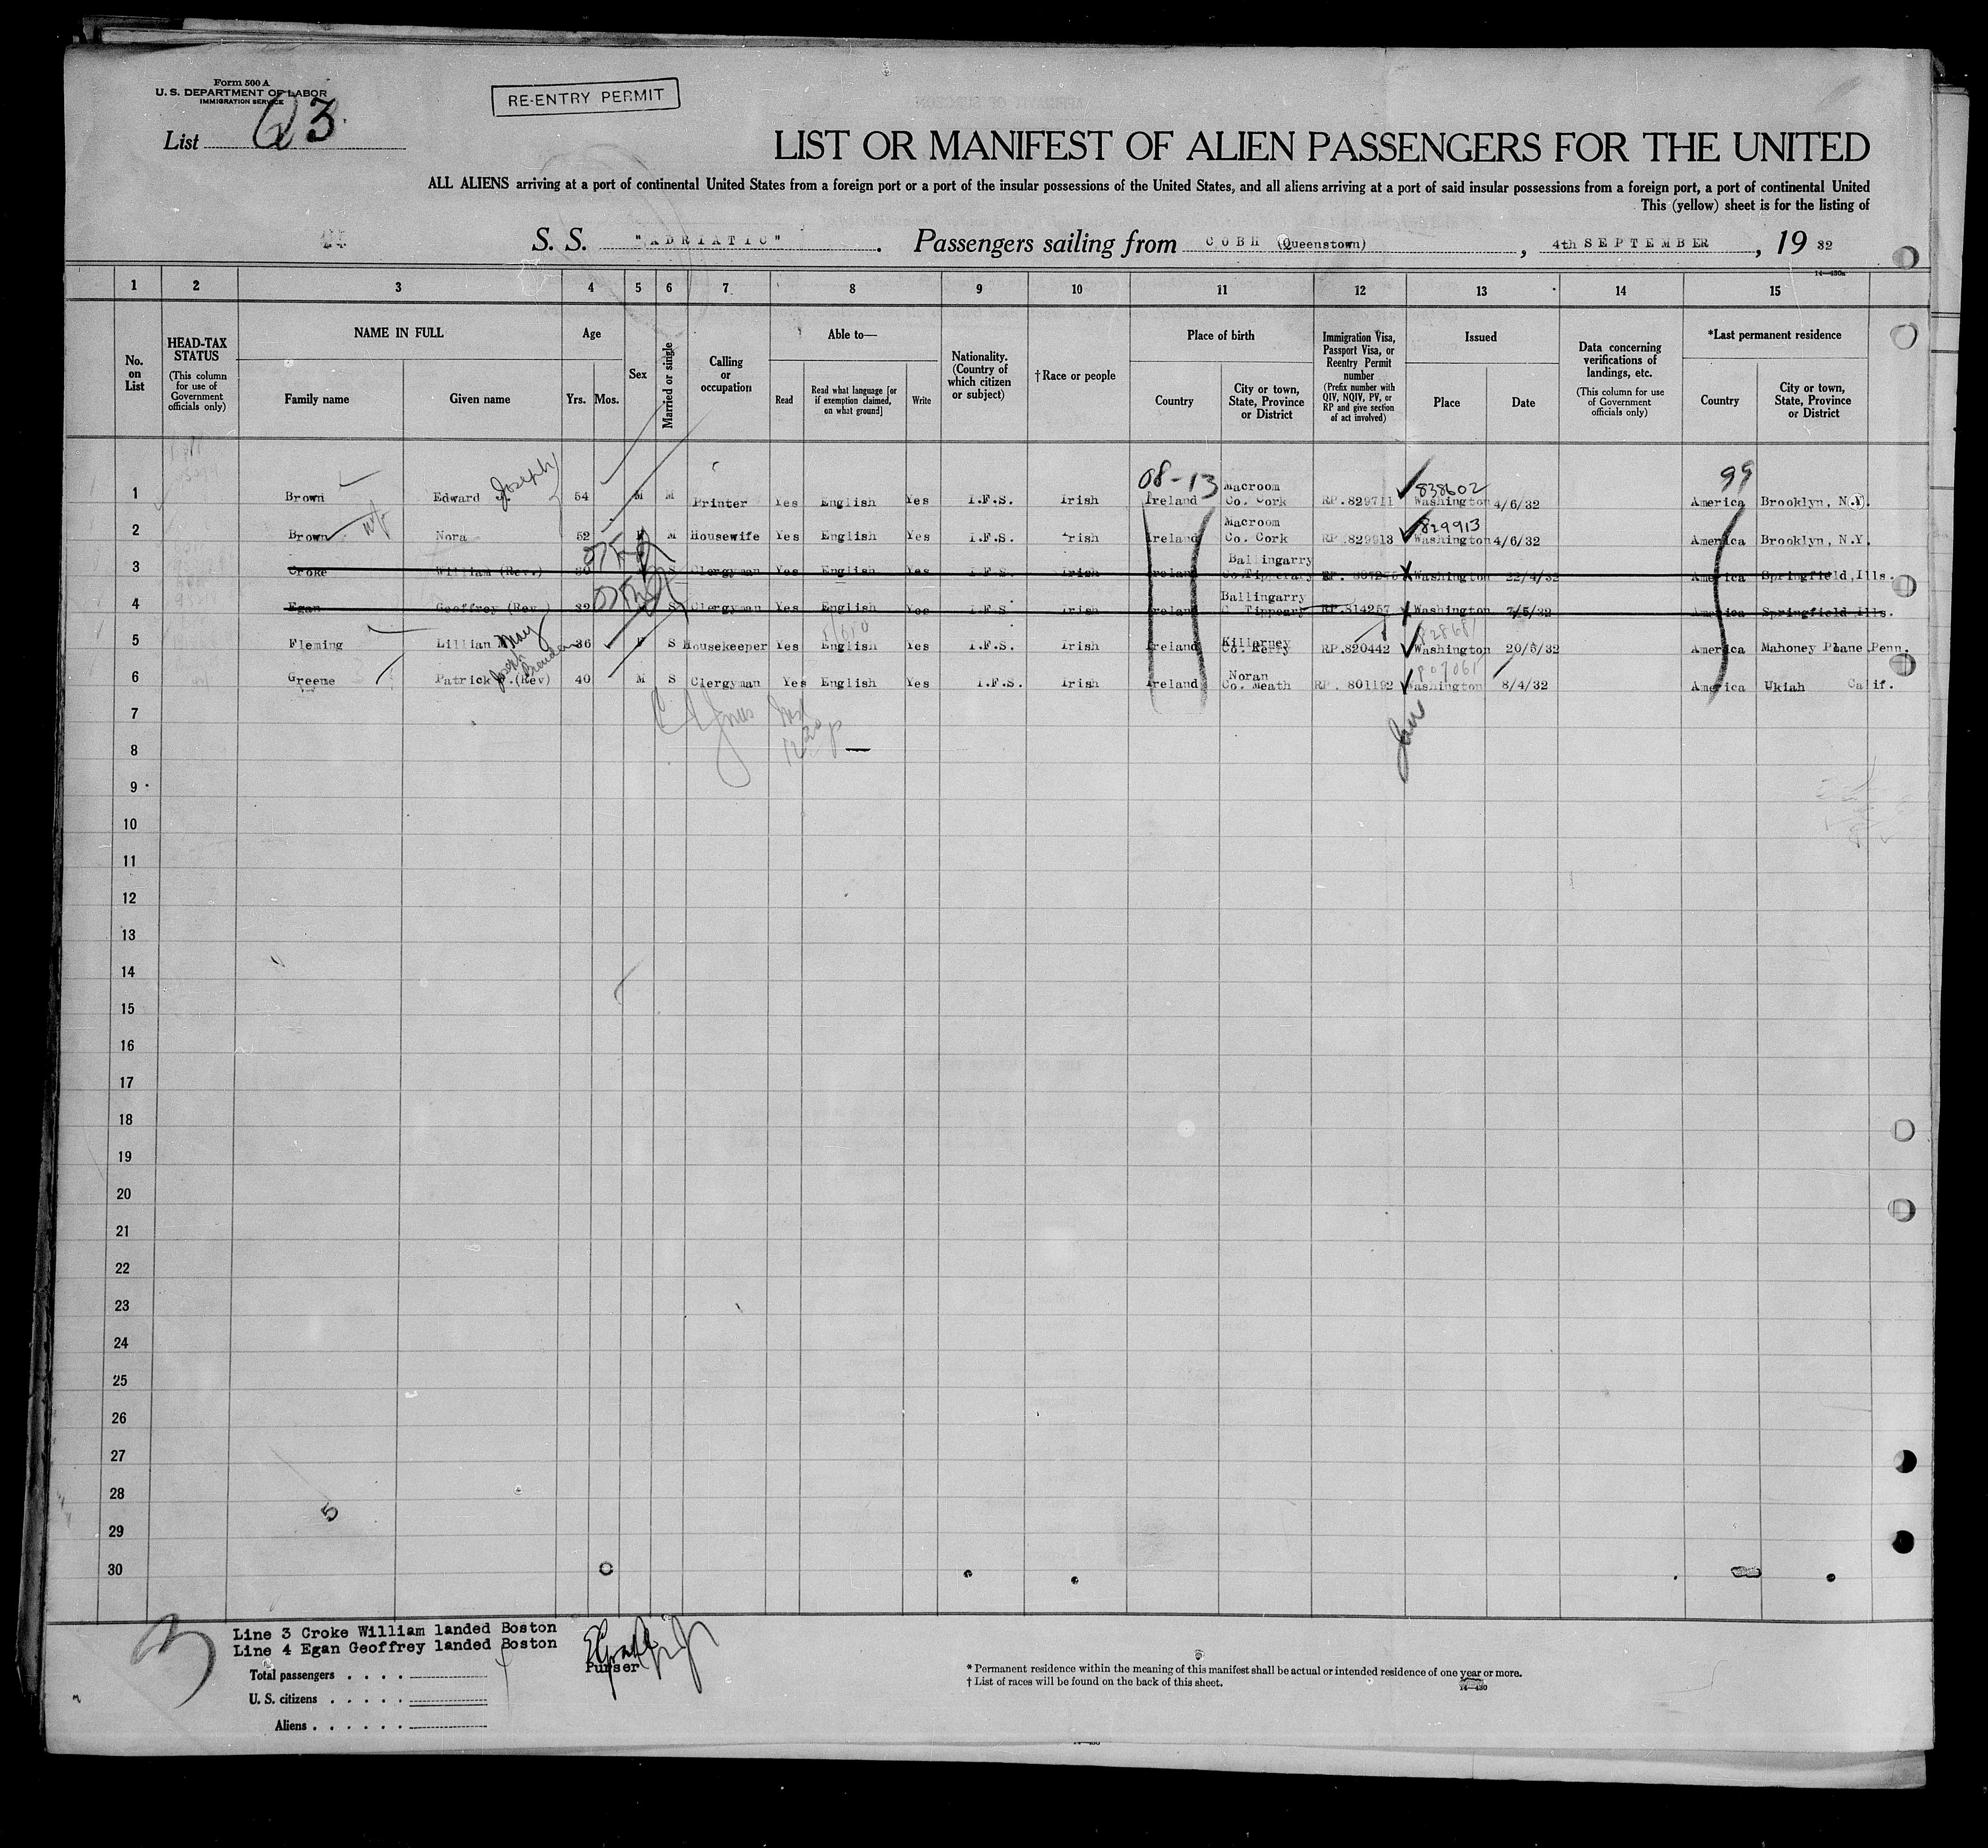 Form 500 A
U. S. DEPARTMENT OF LABOR
IMMIGRATION SERVICE
List 63
RE-ENTRY PERMIT
LIST OR MANIFEST OF ALIEN PASSENGERS FOR THE UNITED
ALL ALIENS arriving at a port of continental United States from a foreign port or a port of the insular possessions of the United States, and all aliens arriving at a port of said insular possessions from a foreign port, a port of continental United
This (yellow) sheet is for the listing of
S. S. "ADRIATIC". Passengers sailing from COBH (Queenstown), 4th SEPTEMBER, 19 32
14—430a
1 2 3 4 5 6 7 8 9 10 11 12 13 14 15
No. on List
HEAD-TAX STATUS (This column for use of Government officials only)
NAME IN FULL Family name Given name
Age Yrs. Mos.
Sex
Married or single
Calling or occupation
Able to— Read Read what language [or if exemption claimed, on what ground] Write
Nationality. (Country of which citizen or subject)
†Race or people
Place of birth Country City or town, State, Province or District
Immigration Visa, Passport Visa, or Reentry Permit number (Prefix number with QIV, NQIV, PV, or RP and give section of act involved)
Issued Place Date
Data concerning verifications of landings, etc. (This column for use of Government officials only)
*Last permanent residence Country City or town, State, Province or District
08-13 99
1 Brown Edward J. Joseph 54 M M Printer Yes English Yes I.F.S. Irish Ireland Macroom Co. Cork RP.829711 838602 Washington 4/6/32 America Brooklyn, N.Y.
2 Brown Nora 52 F M Housewife Yes English Yes I.F.S. Irish Ireland Macroom Co. Cork RP.829913 829913 Washington 4/6/32 America Brooklyn, N.Y.
3 Croke William (Rev.) 30 S Clergyman Yes English Yes I.F.S. Irish Ireland Ballingarry Co.Tipperary RP. Washington 22/4/32 America Springfield, Ills.
4 Egan Geoffrey (Rev) 32 S Clergyman Yes English Yes I.F.S Irish Ireland Ballingarry C. Tippeary RP.814257 Washington 7/5/32 America Springfield Ills.
5 Fleming Lillian May 36 F S Housekeeper Yes English Yes I.F.S. Irish Ireland Killarney Co. Kerry RP.820442 Washington 20/5/32 America Mahoney Plane Penn.
6 Greene Patrick (Rev) Joseph Brendan 40 M S Clergyman Yes English Yes I.F.S. Irish Ireland Noran Co. Meath RP. 801192 Washington 8/4/32 America Ukiah Calif.
7
8
9
10
11
12
13
14
15
16
17
18
19
20
21
22
23
24
25
26
27
28
5
29
30
3
Line 3 Croke William landed Boston
Line 4 Egan Geoffrey landed Boston
Purser
Total passengers . . . .
U. S. citizens . . . . .
Aliens . . . . . .
* Permanent residence within the meaning of this manifest shall be actual or intended residence of one year or more.
† List of races will be found on the back of this sheet.
14—430